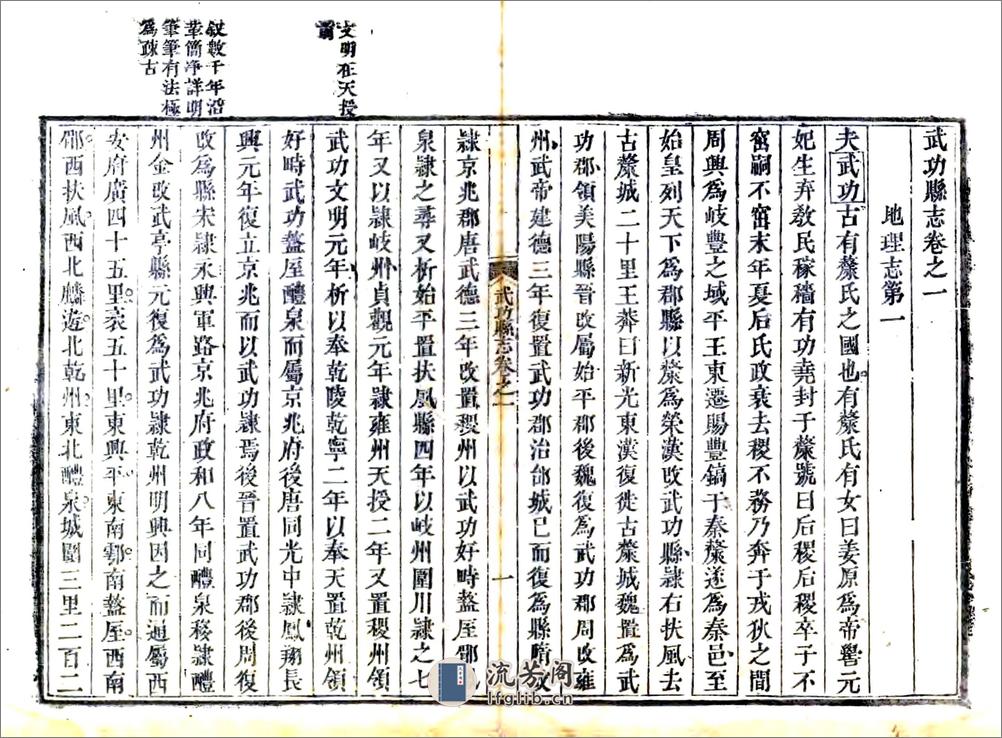 武功縣志卷之一
地理志第一
夫武功古有斄氏之國也有斄氏有女曰姜原爲帝嚳元
妃生弃敎民稼穡有功堯封于斄號曰后稷后稷卒子不
窋嗣不窋末年夏后氏政衰去稷不務乃奔于戎狄之間
周興爲岐豐之域平王東遷賜豐鎬于秦斄遂爲秦邑至
始皇列天下爲郡縣以斄爲漢改武功縣隷右扶風去
古斄城二十里王莽曰新光東漢復徙古斄城魏置爲武
功郡領美陽縣晉改屬始平郡後魏復爲武功郡周改雍
州武帝建德三年復置武功郡治邰城已而復爲縣隋改
武功縣志卷之一
一
隷京兆郡唐武德三年改置稷州以武功好畤盩厔郿鳳
泉隷之尋又析始平置扶風縣四年以岐州圍川隷之七
年又以隷岐州貞觀元年隷雍州天授二年又置稷州領
武功文明元年析以奉乾陵乾寧二年以奉天置乾州領
好畤武功盩厔醴泉而屬京兆府後唐同光中隷鳳翔長
興元年復立京兆而以武功隷焉後晉置武功郡後周復
改爲縣宋隷永興軍路京兆府政和八年同醴泉移隷醴
州金改武亭縣元復爲武功隷乾州明興因之而通屬西
安府廣四十五里袤五十里東興平東南鄠南盩厔西南
郿西扶風西北麟遊北乾州東北醴泉城圍三里二百二
文明在天授
前
敘數千年沿
革簡淨詳明
筆筆有法極
爲疎古
流芳阁
lfglib.cn